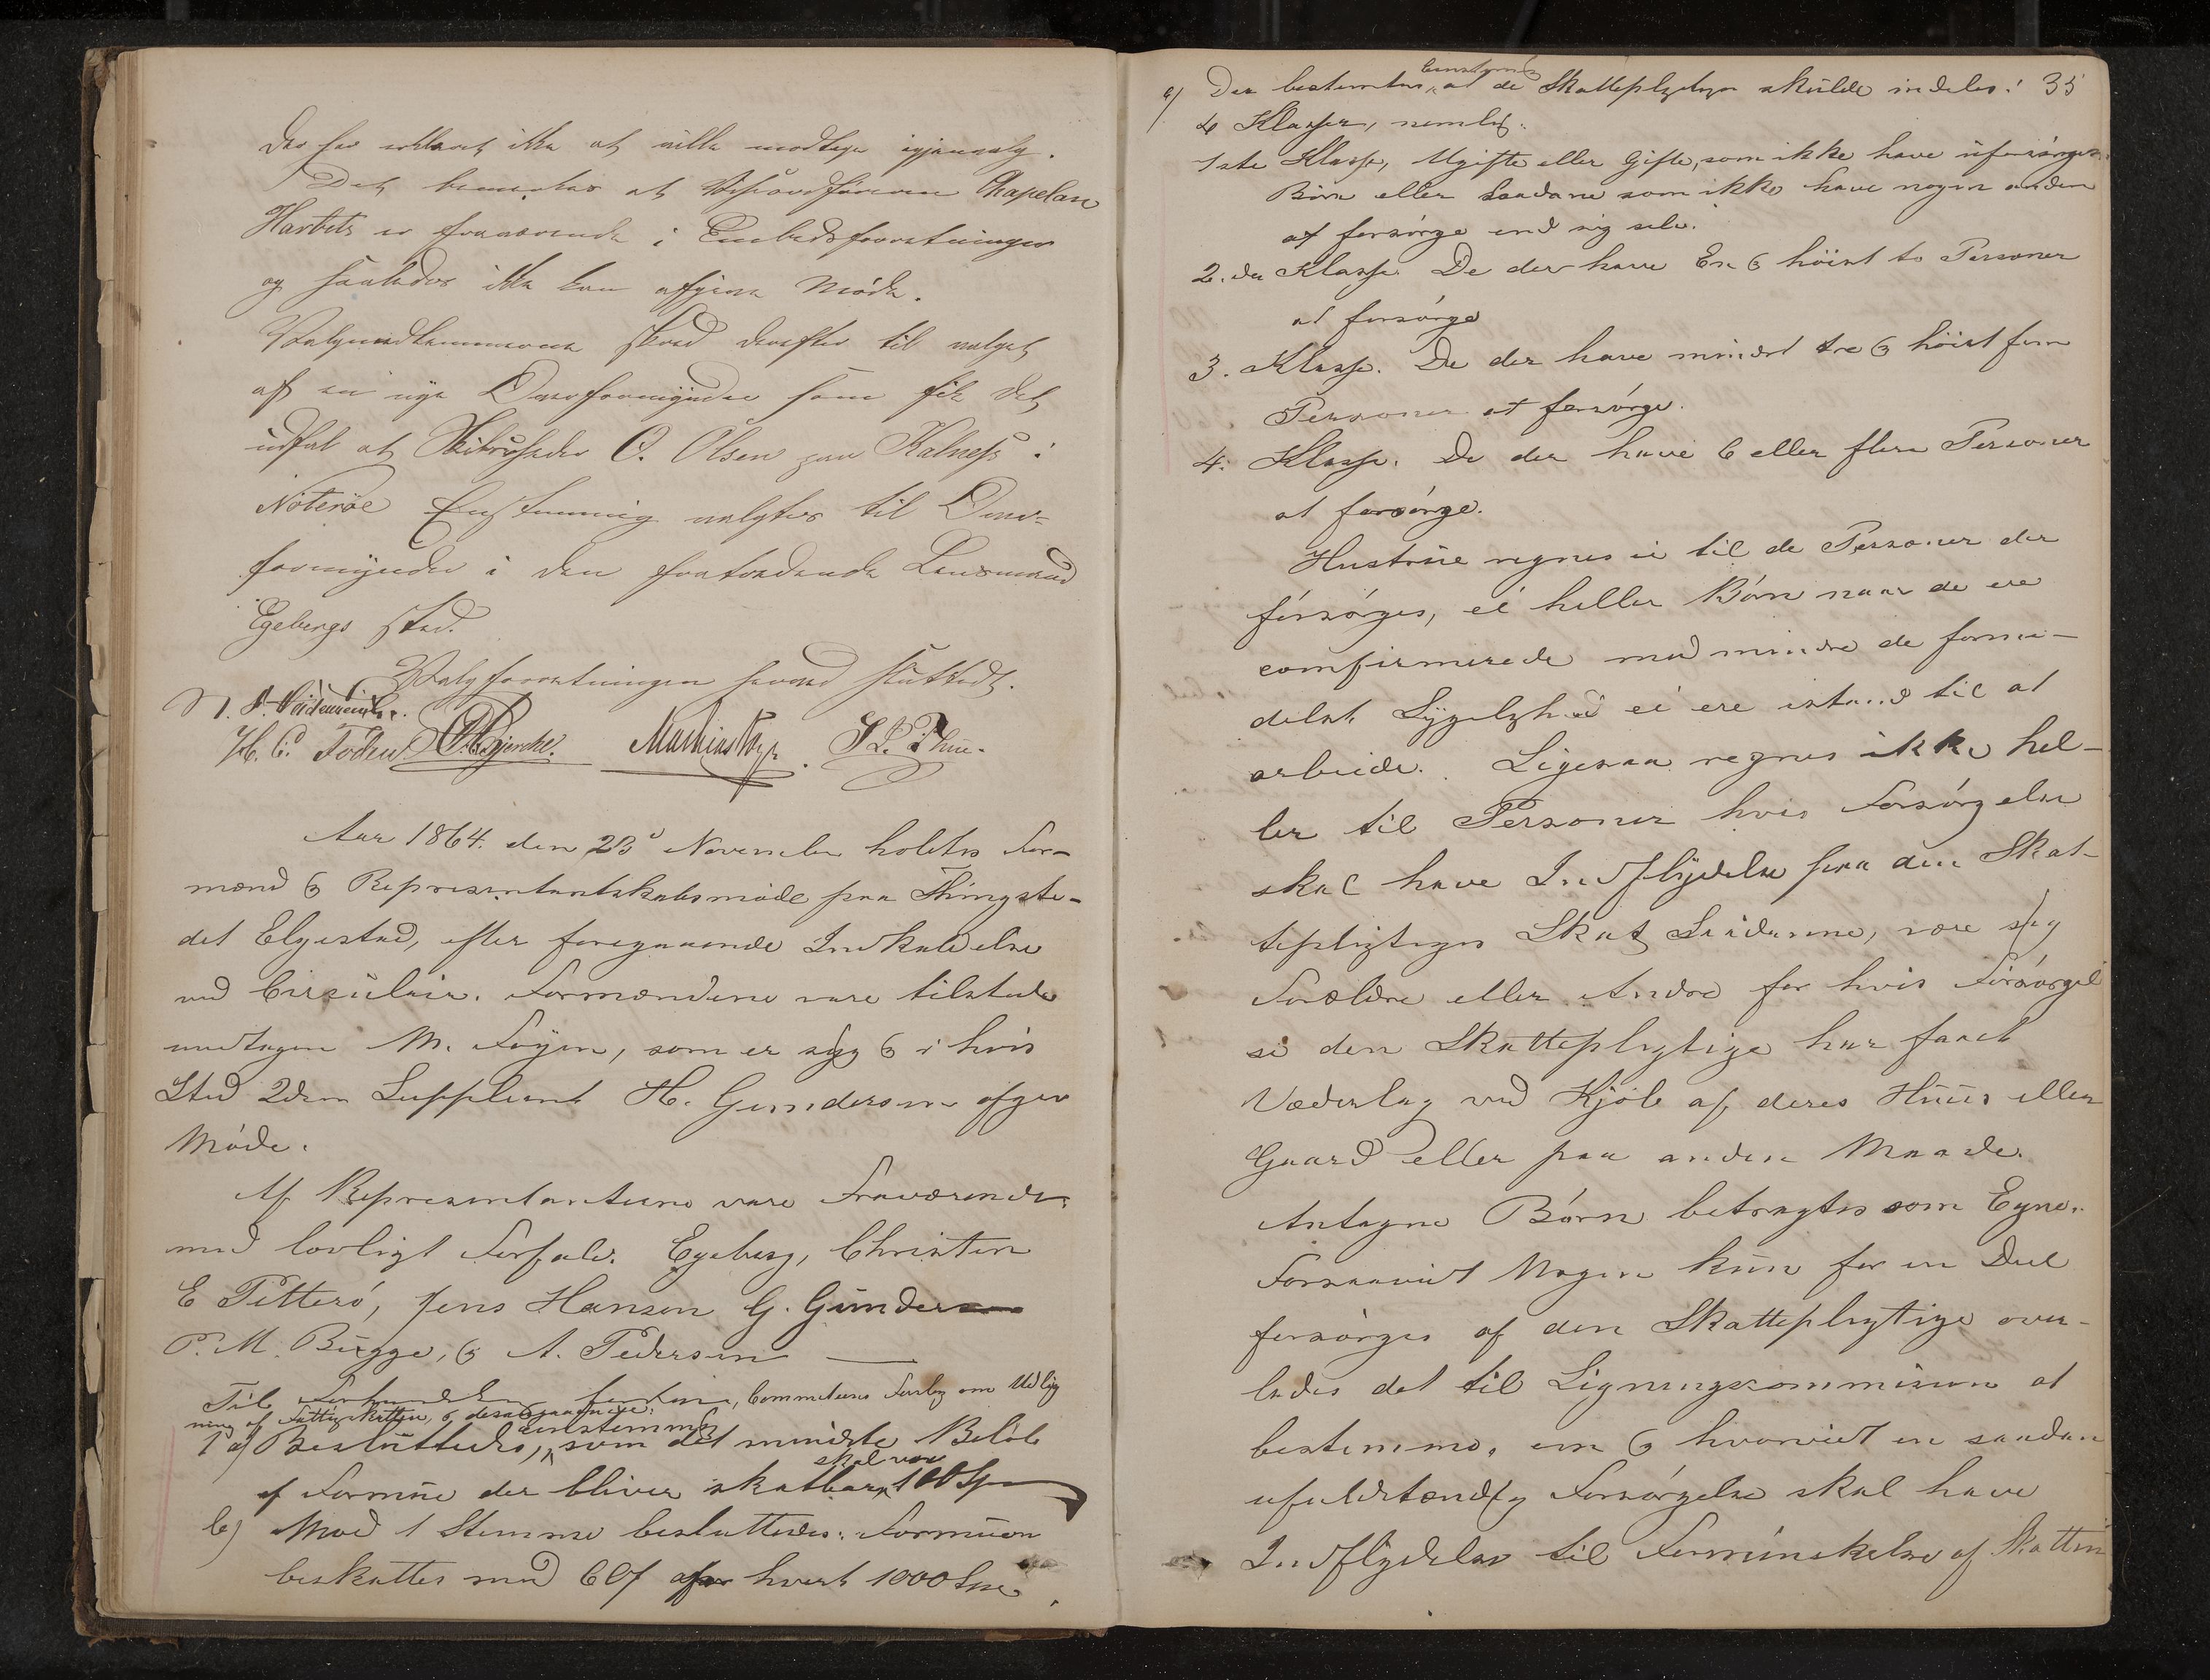 der har erklæret ikke at ville modtage igjenvalg.
Det bemærkes at Viceordføreren Chapelan
Harbitz er fraværende i Embedsforretninger
og saaledes ikke kan afgive Møde.
Valgmedlemmerne skred derefter til valget
af en nye Overformynder som fik det
udfald at Skibsreder O. Olsen paa Kalnæss i
Nøterøe Enstemmig valgtes til Over-
formynder i den fratredende Lensmand
Egebergs sted.
Valgforretningen herved sluttedt.
H. C. Foden Mathias Føyn
Aar 1864. den 23d November holdtes For-
mænd & Repræsentantskabsmøde paa Thingste-
det Elgestad, efter foregaaende Indkaldelse
ved Circulair. Formændene vare tilstede
undtagen M. Føyen, som er syg & i hvis
Sted 2den Suppleant H. Gundersen afgav
Møde.
Af Repræsentanterne vare Fraværende
med lovligt Forfald. Egeberg, Christen
E Pitterö, Jens Hansen G. Gundersen
P. M. Bugge, & A. Pedersen
Til Forhandling Committeens Forslag om Udlig
ning af Fattigskatten, & desangaaende:
1 a) Besluttedes, eenstemmig som det mindste Beløb
af Formue der bliver skatbar, skal være 100 Spd
b) Mod 1 Stemme besluttedes: Formuen
beskattes med 60 f af hvert 1000 Spd.
35
c) Der bestemtes, eenstemmig at de Skattepligtige skulde indeles i
4 Klasser, nemlig:
1ste Klasse, Ugifte eller Gifte, som ikke have uforsørgede
Børn eller Saadane som ikke have nogen anden
at forsørge end sig selv.
2.den Klasse De der have En & höist to Personer
at forsørge
3. Klasse. De der have mindst tre & höist fem
Personer at forsørge.
4. Klasse. De der have 6 eller flere Personer
at forsørge.
Hustrue regnes ei til de Personer der
forsørges, ei heller Børn naar de ere
comfirmerede med mindre de forme-
delst Sygelighed ei ere istand til at
arbeide. Ligesaa regnes ikke hel-
ler til Personer hvis Forsørgelse
skal have Indflydelse paa den Skat-
tepligtiges Skat Saadanne, være sig
Forældre eller Andre for hvis Forsørgel
se den Skattepligtige har faaet
Vederlag ved Kjøb af deres Huus eller
Gaard eller paa anden Maade.
Antagne Børn betragtes som Egne.
Forsaavidt Nogen kun for en Deel
forsørges af den Skattepligtige over-
lades det til Ligningscommision at
bestemme, om & hvorvidt en saadan
ufuldstændig Forsørgelse skal have
Indflydelse til Formindskelse af Skatten